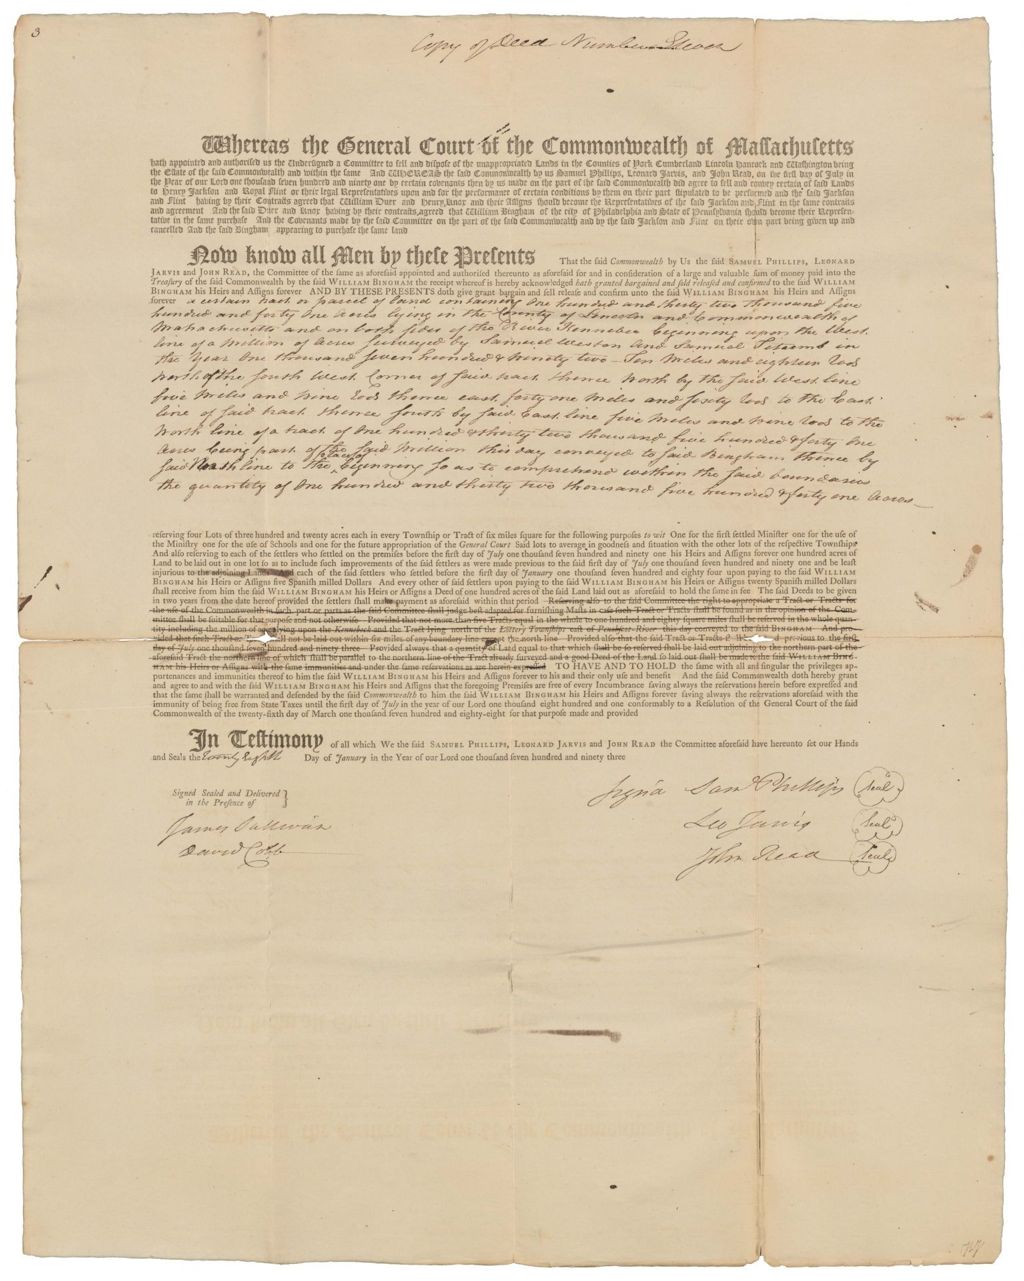 3
Copy of Deed Number Eleven
Whereas the General Court of the Commonwealth of Massachusetts
hath appointed and authorised us the Undersigned a Committee to sell and dispose of the unappropriated Lands in the Counties of York Cumberland Lincoln Hancock and Washington being
the Estate of the said Commonwealth and within the same And WHEREAS the said Commonwealth by us Samuel Phillips, Leonard Jarvis, and John Read, on the first day of July in
the Year of our Lord one thousand seven hundred and ninety one by certain covenants then by us made on the part of the said Commonwealth did agree to sell and convey certain of said Lands
to Henry Jackson and Royal Flint or their legal Representatives upon and for the performance of certain conditions by them on their part stipulated to be performed and the said Jackson
and Flint having by their Contracts agreed that William Duer and Henry Knox and their Assigns should become the Representatives of the said Jackson and Flint in the same contracts
and agreement And the said Duer and Knox having by their contracts, agreed that William Bingham of the city of Philadelphia and State of Pennsylvania should become their Represen-
tative in the same purchase And the Covenants made by the said Committee on the part of the said Commonwealth and by the said Jackson and Flint on their own part being given up and
cancelled And the said Bingham appearing to purchase the same land
Now know all Men by these Presents That the said Commonwealth by Us the said SAMUEL PHILLIPS, LEONARD
JARVIS and JOHN READ, the Committee of the same as aforesaid appointed and authorised thereunto as aforesaid for and in consideration of a large and valuable sum of money paid into the
Treasury of the said Commonwealth by the said WILLIAM BINGHAM the receipt whereof is hereby acknowledged hath granted bargained and sold released and confirmed to the said WILLIAM
BINGHAM his Heirs and Assigns forever AND BY THESE PRESENTS doth give grant bargain and sell release and confirm unto the said WILLIAM BINGHAM his Heirs and Assigns
forever a certain tract or parcel of land containing One hundred and thirty two thousand five
hundred and forty One Acres lying in the County of Lincoln and Commonwealth of
Massachusetts and on both sides of the River Kennebec beginning upon the West
line of a Million of Acres surveyed by Samuel Weston and Samuel Titcomb in
the Year One thousand seven hundred & Ninety two – Ten Miles and eighteen rods
North of the South West Corner of said tract thence North by the said West line
five Miles and Nine rods thence east forty one Miles and sixty rods to the East
line of said tract thence South by said East line five Miles and Nine rods to the
North line of a tract of One hundred & thirty two thousand five hundred & forty One
Acres being part of the said Million this day conveyed to said Bingham thence by
said North line to the place of beginning so as to comprehend within the said boundaries
the quantity of One hundred and thirty two thousand five hundred & forty one Acres
reserving four Lots of three hundred and twenty acres each in every Township or Tract of six miles square for the following purposes to wit One for the first settled Minister one for the use of
the Ministry one for the use of Schools and one for the future appropriation of the General Court Said lots to average in goodness and situation with the other lots of the respective Townships
And also reserving to each of the settlers who settled on the premises before the first day of July one thousand seven hundred and ninety one his Heirs and Assigns forever one hundred acres of
Land to be laid out in one lot so as to include such improvements of the said settlers as were made previous to the said first day of July one thousand seven hundred and ninety one and be least
injurious to the adjoining Lands And each of the said settlers who settled before the first day of January one thousand seven hundred and eighty four upon paying to the said WILLIAM
BINGHAM his Heirs or Assigns five Spanish milled Dollars And every other of said settlers upon paying to the said WILLIAM BINGHAM his Heirs or Assigns twenty Spanish milled Dollars
shall receive from him the said WILLIAM BINGHAM his Heirs or Assigns a Deed of one hundred acres of the said Land laid out as aforesaid to hold the same in fee The said Deeds to be given
in two years from the date hereof provided the settlers shall make payment as aforesaid within that period Reserving also to the said Committee the right to appropriate a Tract or Tracts for
the use of the Commonwealth in such part or parts as the said Committee shall judge best adapted for furnishing Masts in case such Tract or Tracts shall be found as in the opinion of the Com-
mittee shall be suitable for that purpose and not otherwise Provided that not more than five Tracts equal in the whole to one hundred and eighty square miles shall be reserved in the whole quan-
tity including the million of acres lying upon the Kennebeck and the Tract lying north of the Lottery Townships east of Penobscot River this day conveyed to the said BINGHAM And pro-
vided that such Tract or not be laid out within six miles of any boundary line except the north line Provided also that the said Tract or Tracts previous to the first
day of July one thousand seven hundred and ninety three Provided always that a quantity of Land equal to that which shall be so reserved shall be laid out adjoining to the northern part of the
aforesaid Tract the northern line of which shall be parallel to the northern line of the Tract already surveyed and a good Deed of the Land so laid out shall be made to the said WILLIAM BING-
HAM his Heirs or Assigns with the same immunities and under the same reservations as are herein expressed TO HAVE AND TO HOLD the same with all and singular the privileges ap-
purtenances and immunities thereof to him the said WILLIAM BINGHAM his Heirs and Assigns forever to his and their only use and benefit And the said Commonwealth doth hereby grant
and agree to and with the said WILLIAM BINGHAM his Heirs and Assigns that the foregoing Premises are free of every Incumbrance saving always the reservations herein before expressed and
that the same shall be warranted and defended by the said Commonwealth to him the said WILLIAM BINGHAM his Heirs and Assigns forever saving always the reservations aforesaid with the
immunity of being free from State Taxes until the first day of July in the year of our Lord one thousand eight hundred and one conformably to a Resolution of the General Court of the said
Commonwealth of the twenty-sixth day of March one thousand seven hundred and eighty-eight for that purpose made and provided
In Testimony of all which We the said SAMUEL PHILLIPS, LEONARD JARVIS and JOHN READ the Committee aforesaid have hereunto set our Hands
and Seals the twenty Eighth Day of January in the Year of our Lord one thousand seven hundred and ninety three
Signed Sealed and Delivered
in the Presence of
Signd Saml Phillips Seal
James Sullivan
Leo Jarvis Seal
David Cobb
John Read Seal